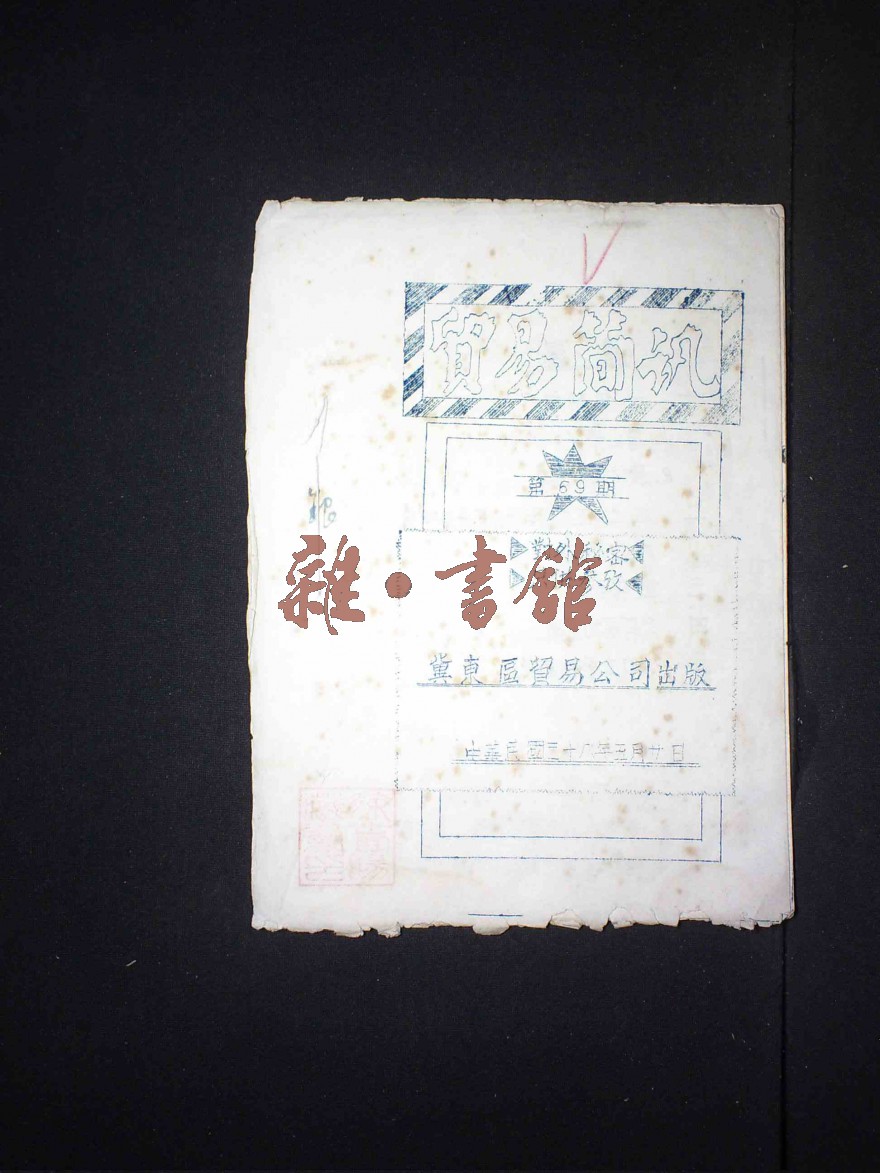 貿易简訊
第69期
對外秘密
冀東區貿易公司出版
中華民國三十八年五月廿日
雜·書館